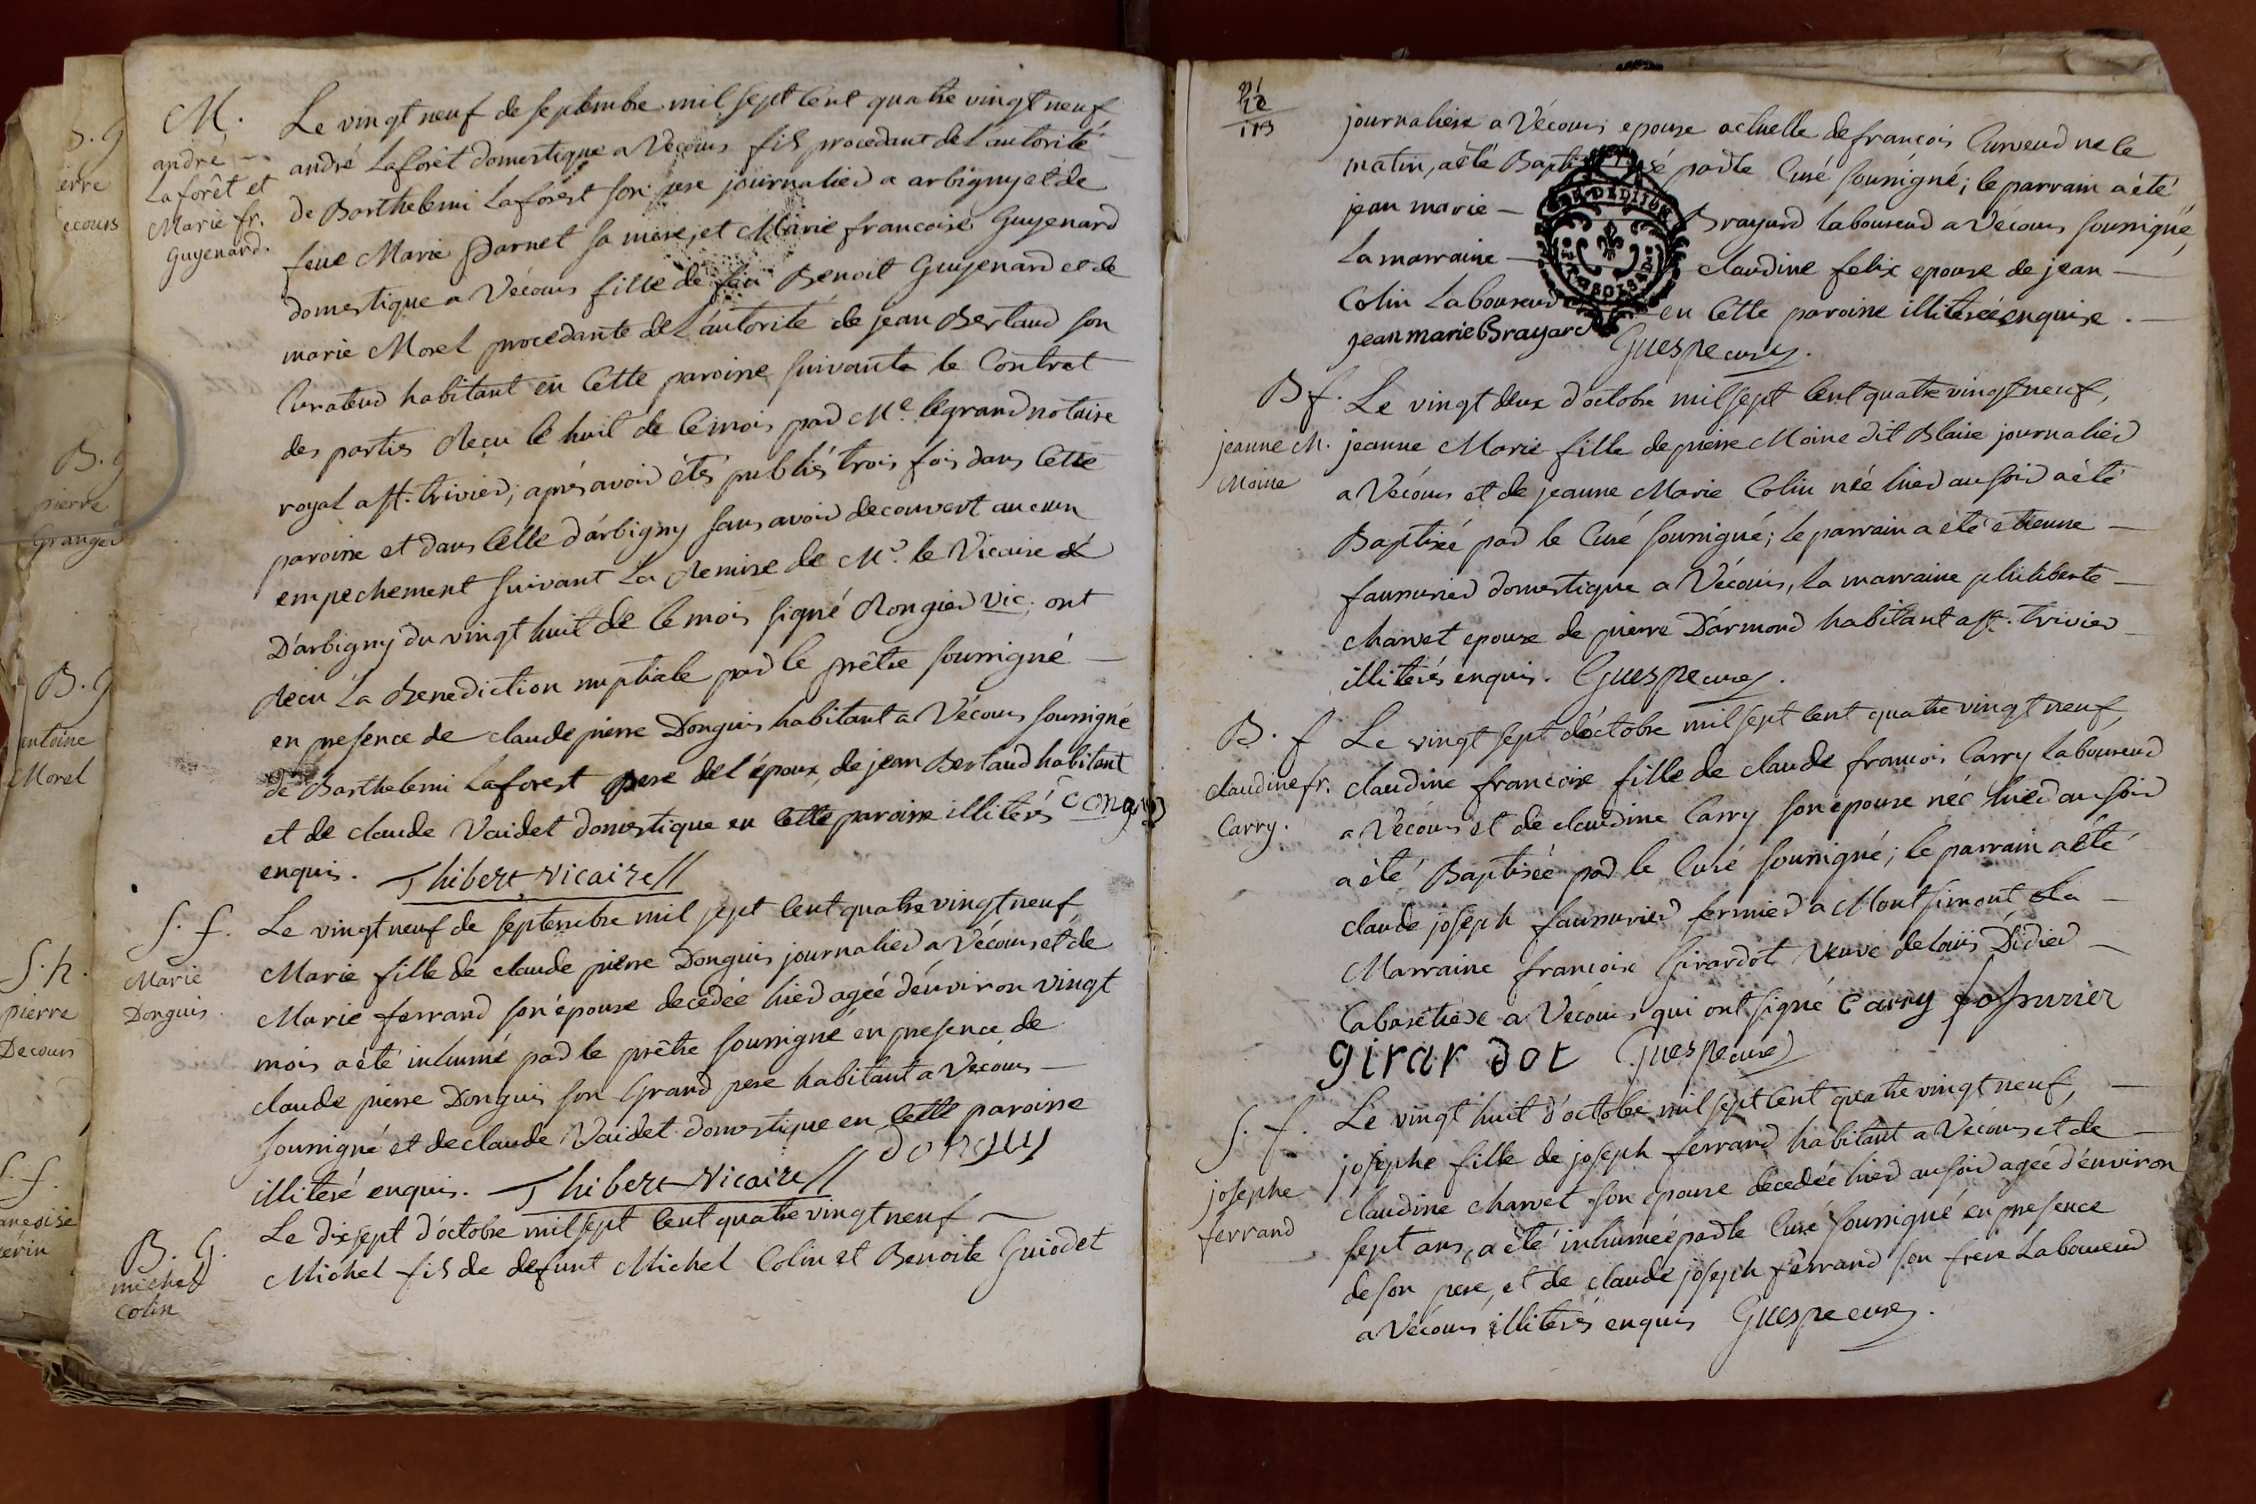 M.
andré
Laforêt et
Marie fr.
Guyenard.
Le vingt neuf de septembre mil sept cent quatre vingt neuf
andré Laforêt domestique a Vécours fils procedant de l'autorité
de Barthelemi Laforest son pere journalier a arbigny et de
feue Marie Darnet sa mere, et Marie francoise Guyenard
domestique a Vécours fille de feu Benoit Guyenard et de
marie Morel procedante de l'autorité de jean Bertaud son
Curateur habitant en Cette paroisse suivants le Contrat
des parties Reçu le huit de ce mois par Me. legrand notaire
royal a st. trivier; aprés avoir étés publiés trois fois dans Cette
paroisse et dans Celle d'arbigny sans avoir decouvert aucun
empechement suivant La Remise de Mr. le Vicaire
D'arbigny du vingt huit de ce mois signé Rongier vic; ont
Recu La Benediction nuptiale par le prêtre soussigné
en presence de claude pierre Donguis habitant a Vécours soussigné
de Barthelemi Laforest pere de l'époux, de jean Bertaud habitant
et de claude Vaidet domestique en Cette paroisse illiterés
enquis. Thibert Vicaire
S. f.
Marie
Donguis.
Le vingt neuf de septembre mil sept cent quatre vingt neuf
Marie fille de claude pierre Donguis journalier a Vécours et de
Marie ferrand son épouse decedée hier agée d'environ vingt
mois a été inhumé par le prêtre soussigné en presence de
claude pierre Donguis son Grand pere habitant a Vécours
soussigné et de claude Vaidet domestique en Cette paroisse
illiteré enquis. Thibert Vicaire
B. G.
michel
Colin
Le dix sept d'octobre mil sept cent quatre vingt neuf
Michel fils de defunt Michel Colin et Benoite Guiodet
journaliere a Vécours epouse actuelle de francois né le
matin, a été Baptisé par le Curé soussigné; le parrain a été
jean marie Brayard laboureur a Vécours soussigné,
La marraine claudine felix epouse de jean
Colin Laboureur en Cette paroisse illiterée enquise.
jean marie Brayard Guespe curé.
B f.
jeanne M.
Moine
Le vingt deux d'octobre mil sept cent quatre vingt neuf,
jeanne Marie fille de pierre Moine dit Blaise journalier
a Vécours et de jeanne Marie Colin née hier au soir a été
Baptisée par le Curé soussigné; le parrain a été etienne
faussurier domestique a Vécours, la marraine philiberte
charvet epouse de pierre D'armond habitant a st. trivier
illiterés enquis. Guespe curé.
B. f
claudine fr.
Carry.
Le vingt sept d'octobre mil sept cent quatre vingt neuf,
claudine francoise fille de claude francois Carry laboureur
a Vécours et de claudine Carry son épouse née hier au soir
a été Baptisée par le Curé soussigné; le parrain a été
claude joseph faussurier fermier a Montsimont La
Marraine francoise Girardot Veuve de Loüis Didier
Cabaretiere a Vécours qui ont signé Carry fossurier
girardot Guespe curé
S. f.
josephe
ferrand
Le vingt huit d'octobre mil sept cent quatre vingt neuf,
josephe fille de joseph ferrand habitant a Vécours et de
claudine charvet son epouse decedée hier au soir agée d'environ
sept ans, a été inhumée par le Curé soussigné en presence
de son pere, et de claude joseph ferrand son frere Laboureur
a Vécours illiterés enquis Guespe curé.